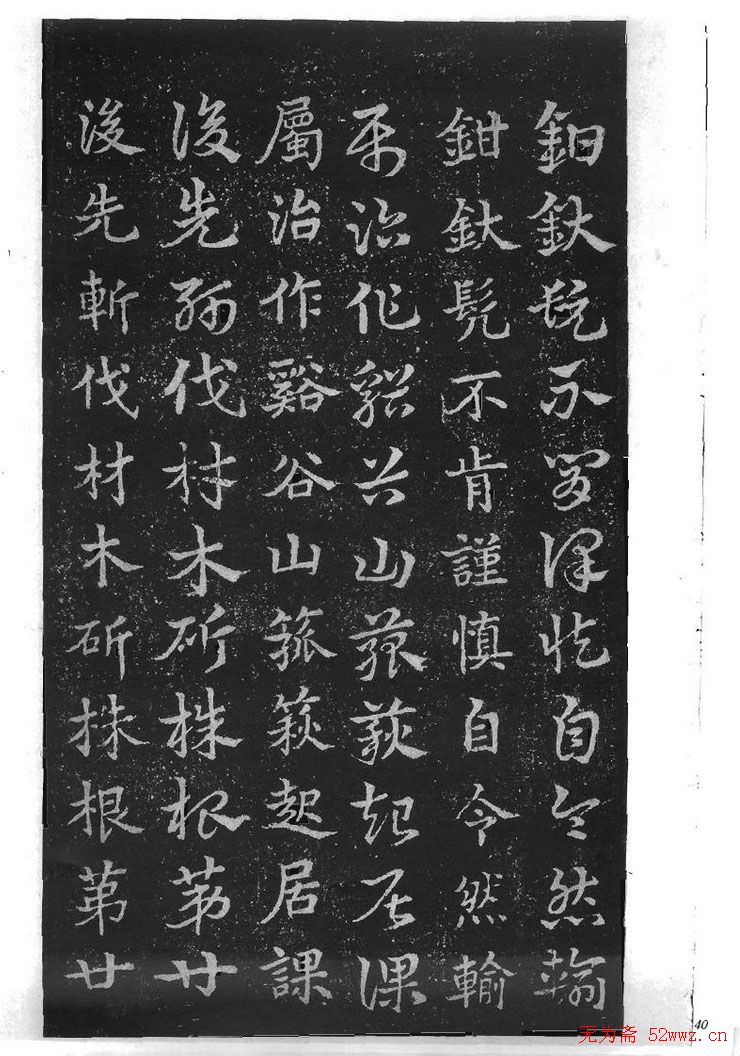 鉗釱髡不肯謹慎自令然輸
鉗釱髡不肯謹慎自令然輸
屬治作谿谷山箛篍起居課
屬治作谿谷山箛篍起居課
後先斬伐材木斫株根苐廿
後先斬伐材木斫株根苐廿
40
无为斋 52wwz.cn